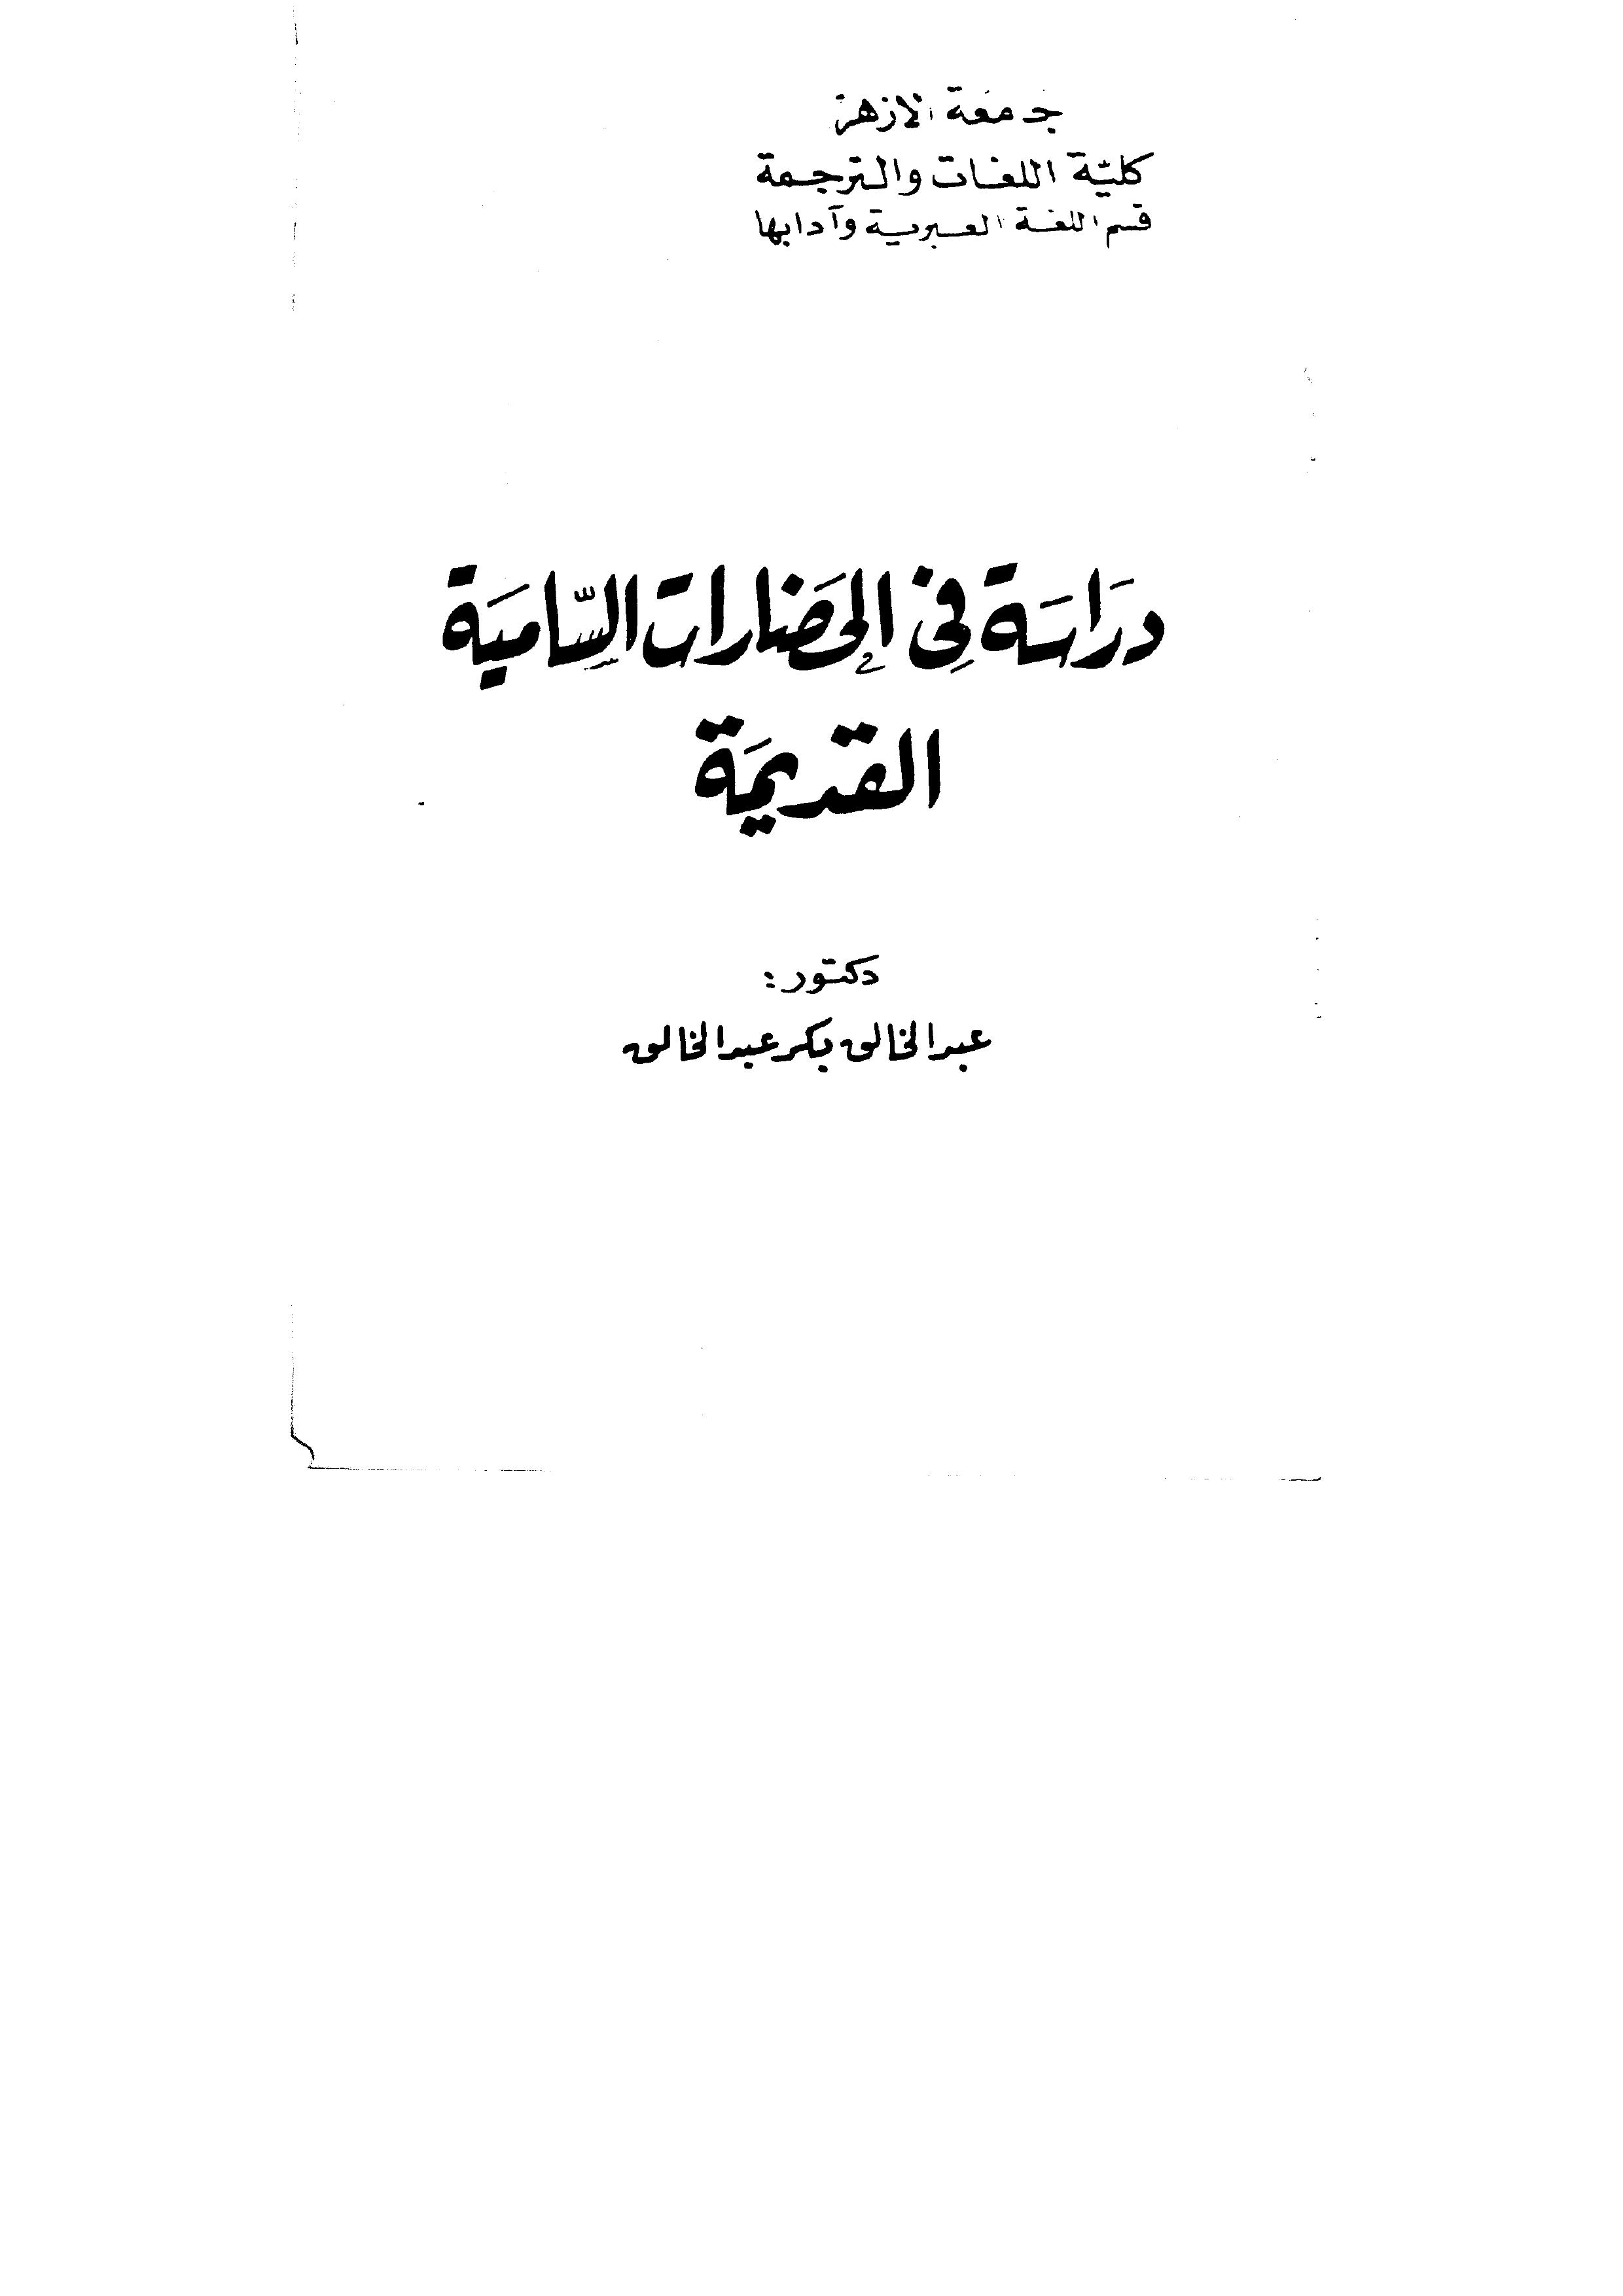 جامعة الازهر
كليّة اللغات والترجمة
قسم اللغة العبرية وآدابها
دَرَاسَة فِي الحَضارات السِّاميَة
القديمَة
دكتور:
عبد الخالق بكر عبد الخالق